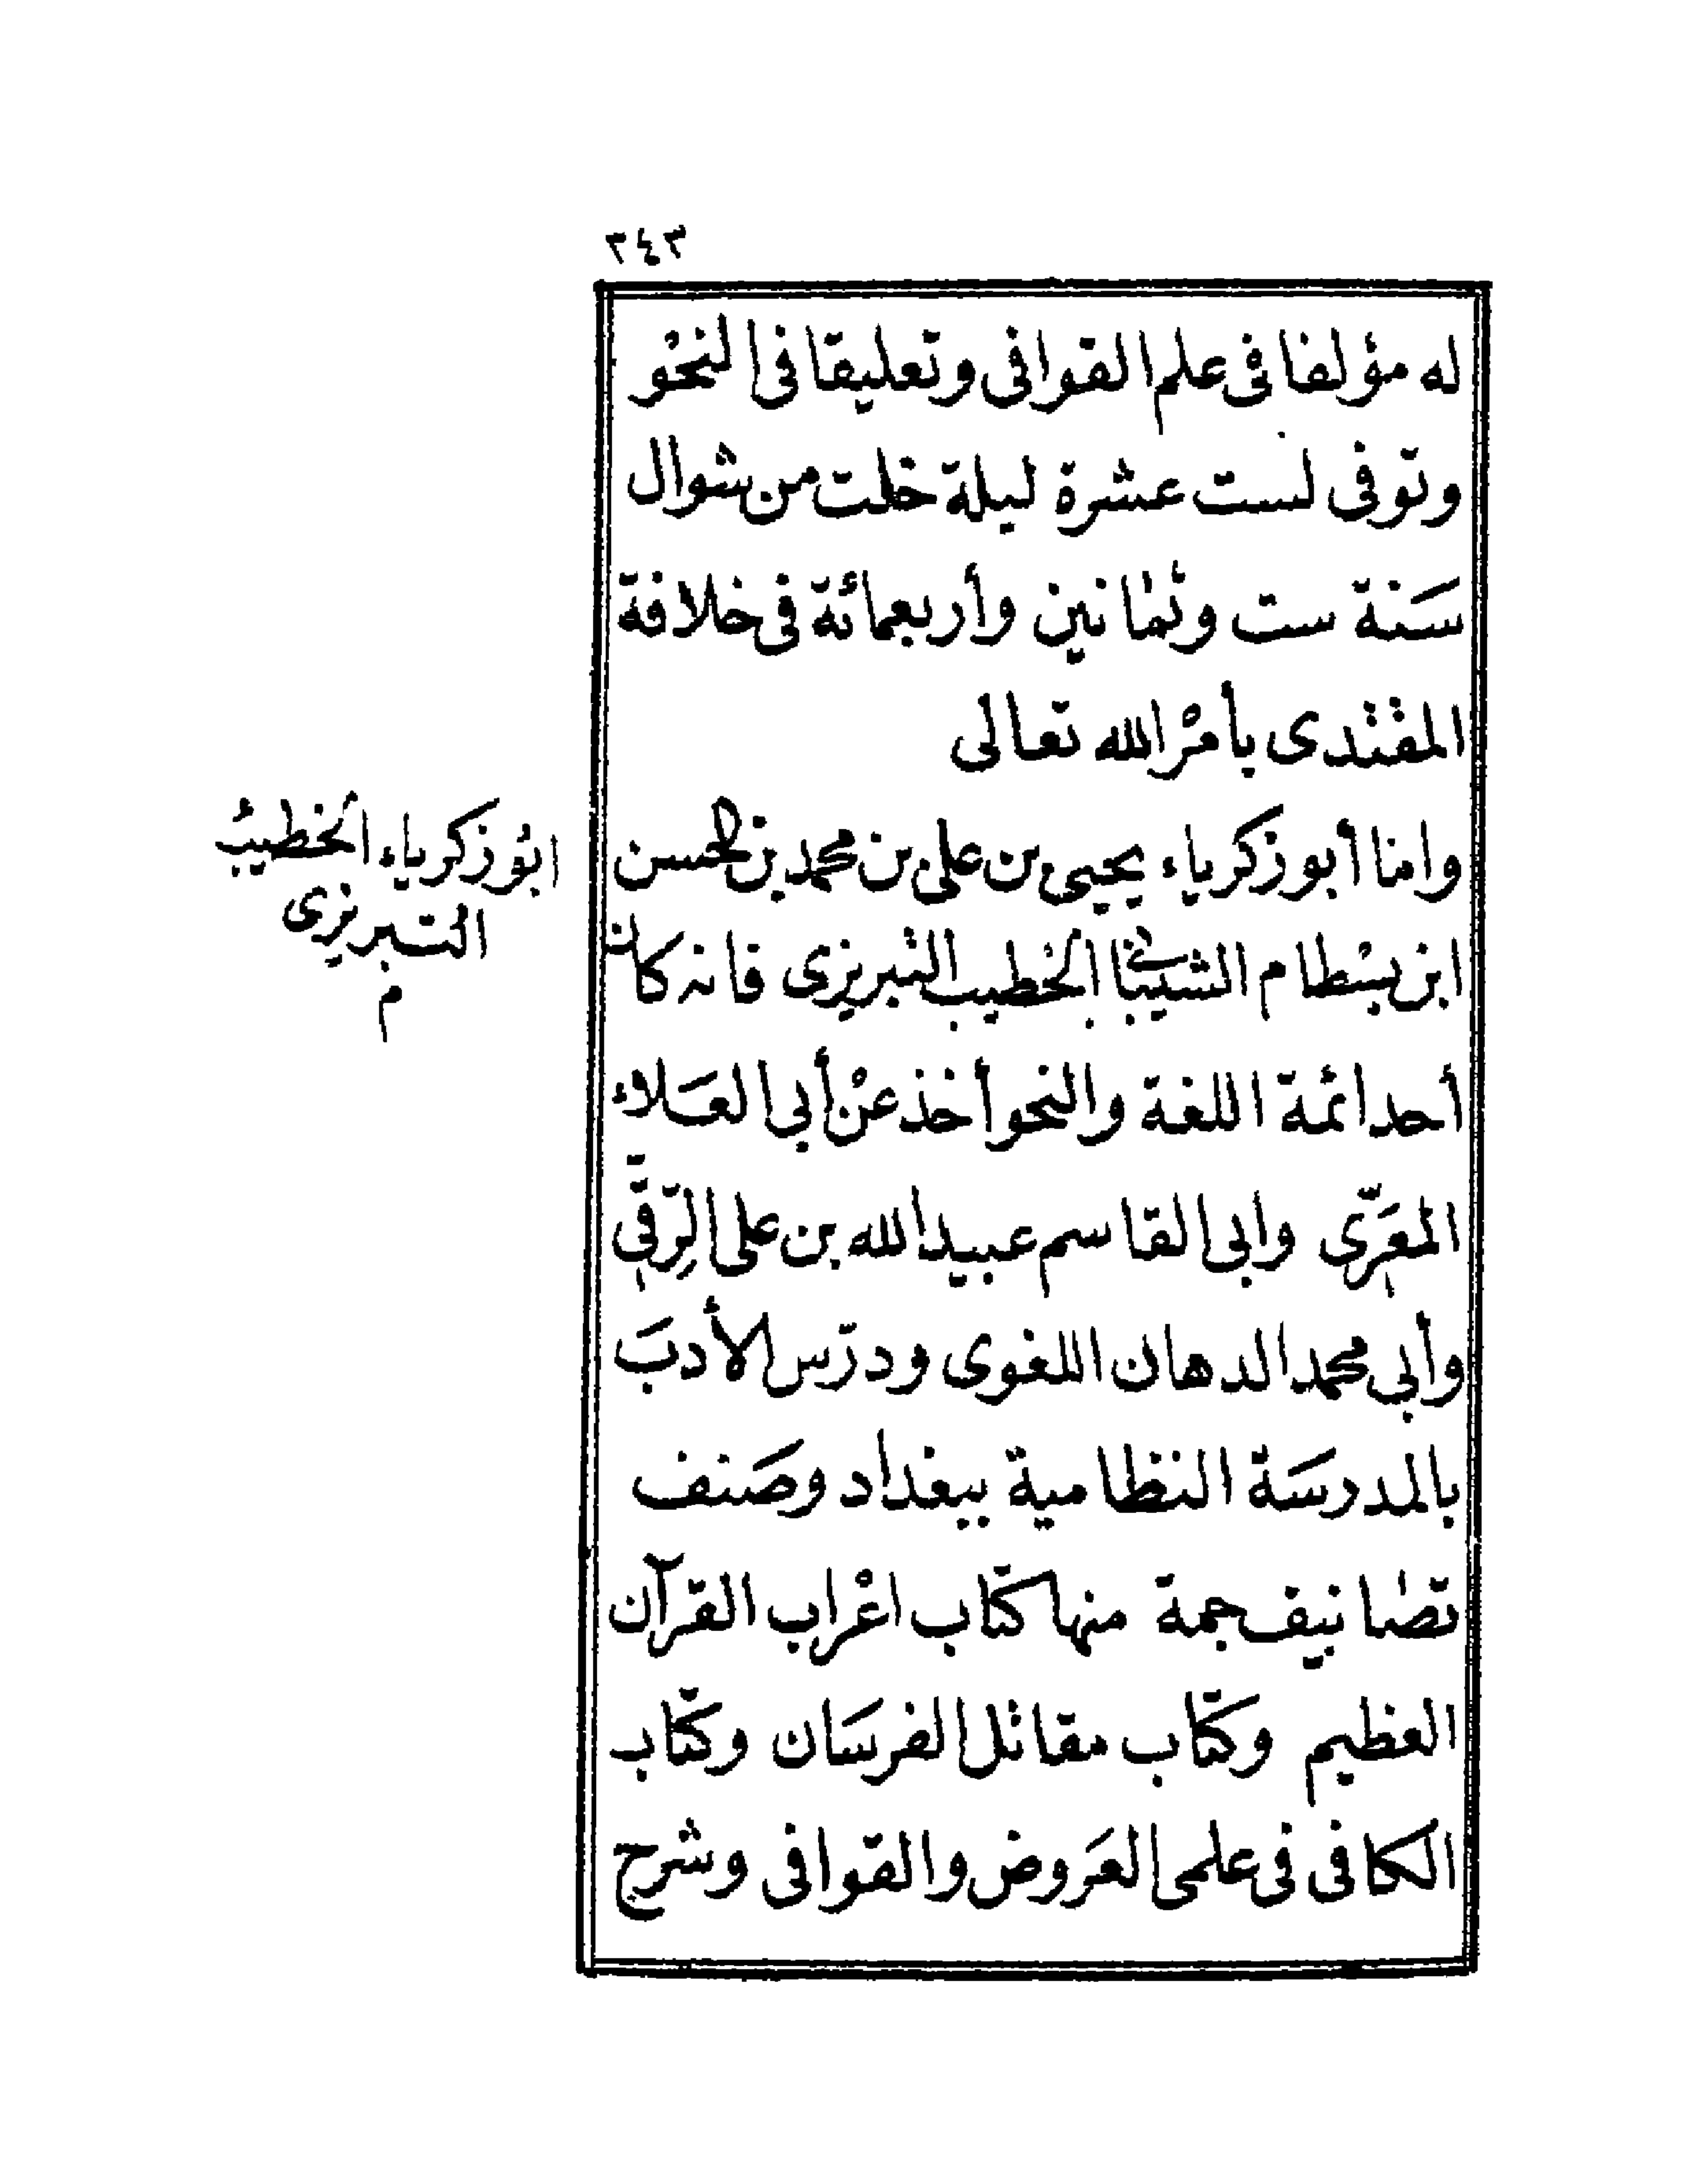 ٣٤٣
له مؤلفا فى علم القوافى وتعليقا فى النحْو
وتوفى لست عشرة ليلة خلت من شوال
سَنة ست وثمانين وأربعمائة فى خلافة
المقتدى بأمْر الله تعالى
واما أبو زكرياء يحيى بن على بن محمد بن الحسن
ابن بسْطام الشيبانى الخطيب التبريزى فانه كان
أحد ائمة اللغة والنحو أخذ عنْ أبي العَلاء
المعَرّى وابى القاسم عبيد الله بن على الرّقّى
وأبي محمد الدهان اللغوى ودرّس الأدبَ
بالمدرسَة النظامية ببغداد وصَنف
تصانيف جمة منها كتاب اعْراب القرآن
العظيم وكتاب مقاتل الفرسَان وكتاب
الكافى فى علمى العَروض والقوافى وشرح
ابو زكرياء الخطيب
التبريزى
م